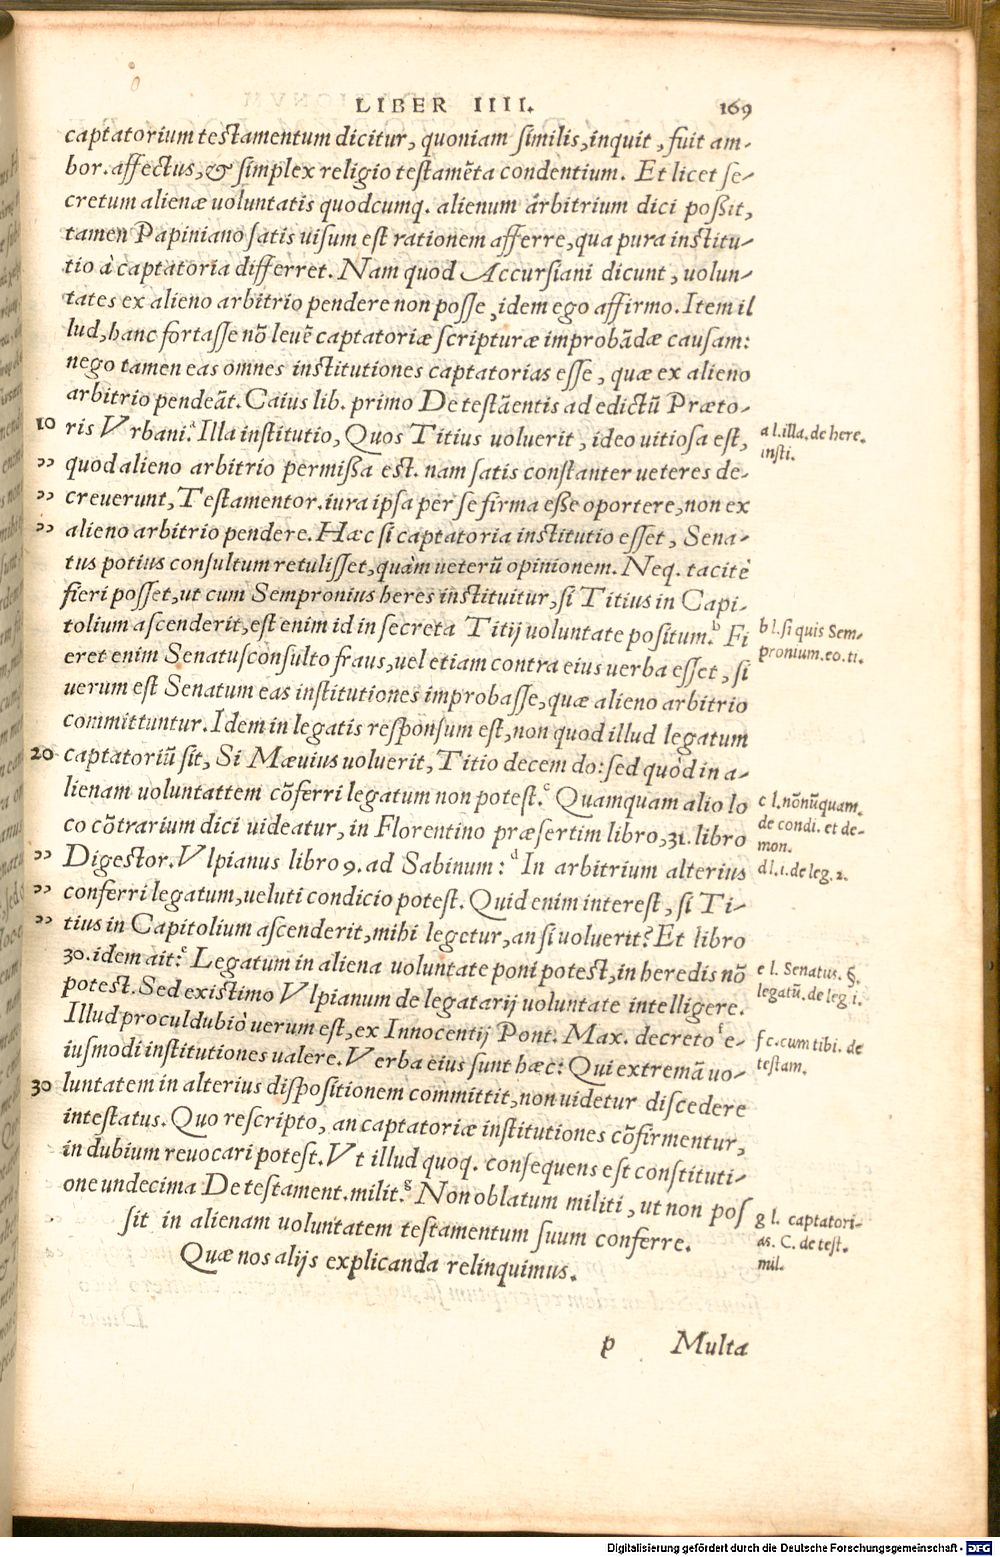 LIBER IIII. 169
captatorium testamentum dicitur, quoniam similis, inquit, fuit am-
bor. affectus, & simplex religio testamẽta condentium. Et licet se-
cretum alienæ uoluntatis quodcumq. alienum arbitrium dici poßit,
tamen Papiniano satis uisum est rationem afferre, qua pura institu-
tio à captatoria differret. Nam quod Accursiani dicunt, uolun-
tates ex alieno arbitrio pendere non posse, idem ego affirmo. Item il
lud, hanc fortasse nõ leuẽ captatoriæ scripturæ improbãdæ causam:
nego tamen eas omnes institutiones captatorias esse, quæ ex alieno
arbitrio pendeãt. Caius lib. primo De testãentis ad edictũ Præto-
10 ris Vrbani:a Illa institutio, Quos Titius uoluerit, ideo uitiosa est,
a l. illa. de here.
insti.
" quod alieno arbitrio permißa est. nam satis constanter ueteres de-
" creuerunt, Testamentor. iura ipsa per se firma eße oportere, non ex
" alieno arbitrio pendere. Hæc si captatoria institutio esset, Sena-
tus potius consultum retulisset, quàm ueterũ opinionem. Neq. tacitè
fieri posset, ut cum Sempronius heres instituitur, si Titius in Capi-
tolium ascenderit, est enim id in secreta Titij uoluntate positum.b Fi
b l. si quis Sem-
pronium. eo. ti.
eret enim Senatusconsulto fraus, uel etiam contra eius uerba esset, si
uerum est Senatum eas institutiones improbasse, quæ alieno arbitrio
committuntur. Idem in legatis responsum est, non quod illud legatum
20 captatoriũ sit, Si Mæuius uoluerit, Titio decem do: sed quòd in a-
lienam uoluntattem cõferri legatum non potest.c Quamquam alio lo
c l. nõnũquam.
de condi. et de-
mon.
co cõtrarium dici uideatur, in Florentino præsertim libro, 31. libro
" Digestor. Vlpianus libro 9. ad Sabinum:d In arbitrium alterius
d l. 1. de leg. 2.
" conferri legatum, ueluti condicio potest. Quid enim interest, si Ti-
" tius in Capitolium ascenderit, mihi legetur, an si uoluerit? Et libro
30. idem ait:e Legatum in aliena uoluntate poni potest, in heredis nõ
e l. Senatus. §.
legatũ. de leg 1.
potest. Sed existimo Vlpianum de legatarij uoluntate intelligere.
Illud proculdubiò uerum est, ex Innocentij Pont. Max. decretof e-
f c. cum tibi. de
testam.
iusmodi institutiones ualere. Verba eius sunt hæc: Qui extremã uo-
30 luntatem in alterius dispositionem committit, non uidetur discedere
intestatus. Quo rescripto, an captatoriæ institutiones cõfirmentur,
in dubium reuocari potest. Vt illud quoq. consequens est constituti-
one undecima De testament. milit.g Non oblatum militi, ut non pos
g l. captatori-
as. C. de test.
mil.
sit in alienam uoluntatem testamentum suum conferre.
Quæ nos alijs explicanda relinquimus.
p Multa
Digitalisierung gefördert durch die Deutsche Forschungsgemeinschaft - DFG